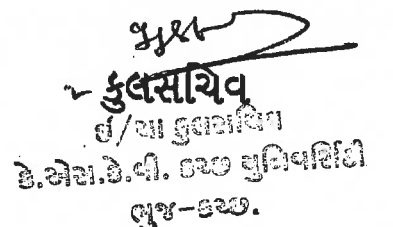 કુલસચિવ
ઈ/ચા કુલસચિવ
કે.એસ.કે.વી. કચ્છ યુનિવર્સિટી
ભુજ-કચ્છ.